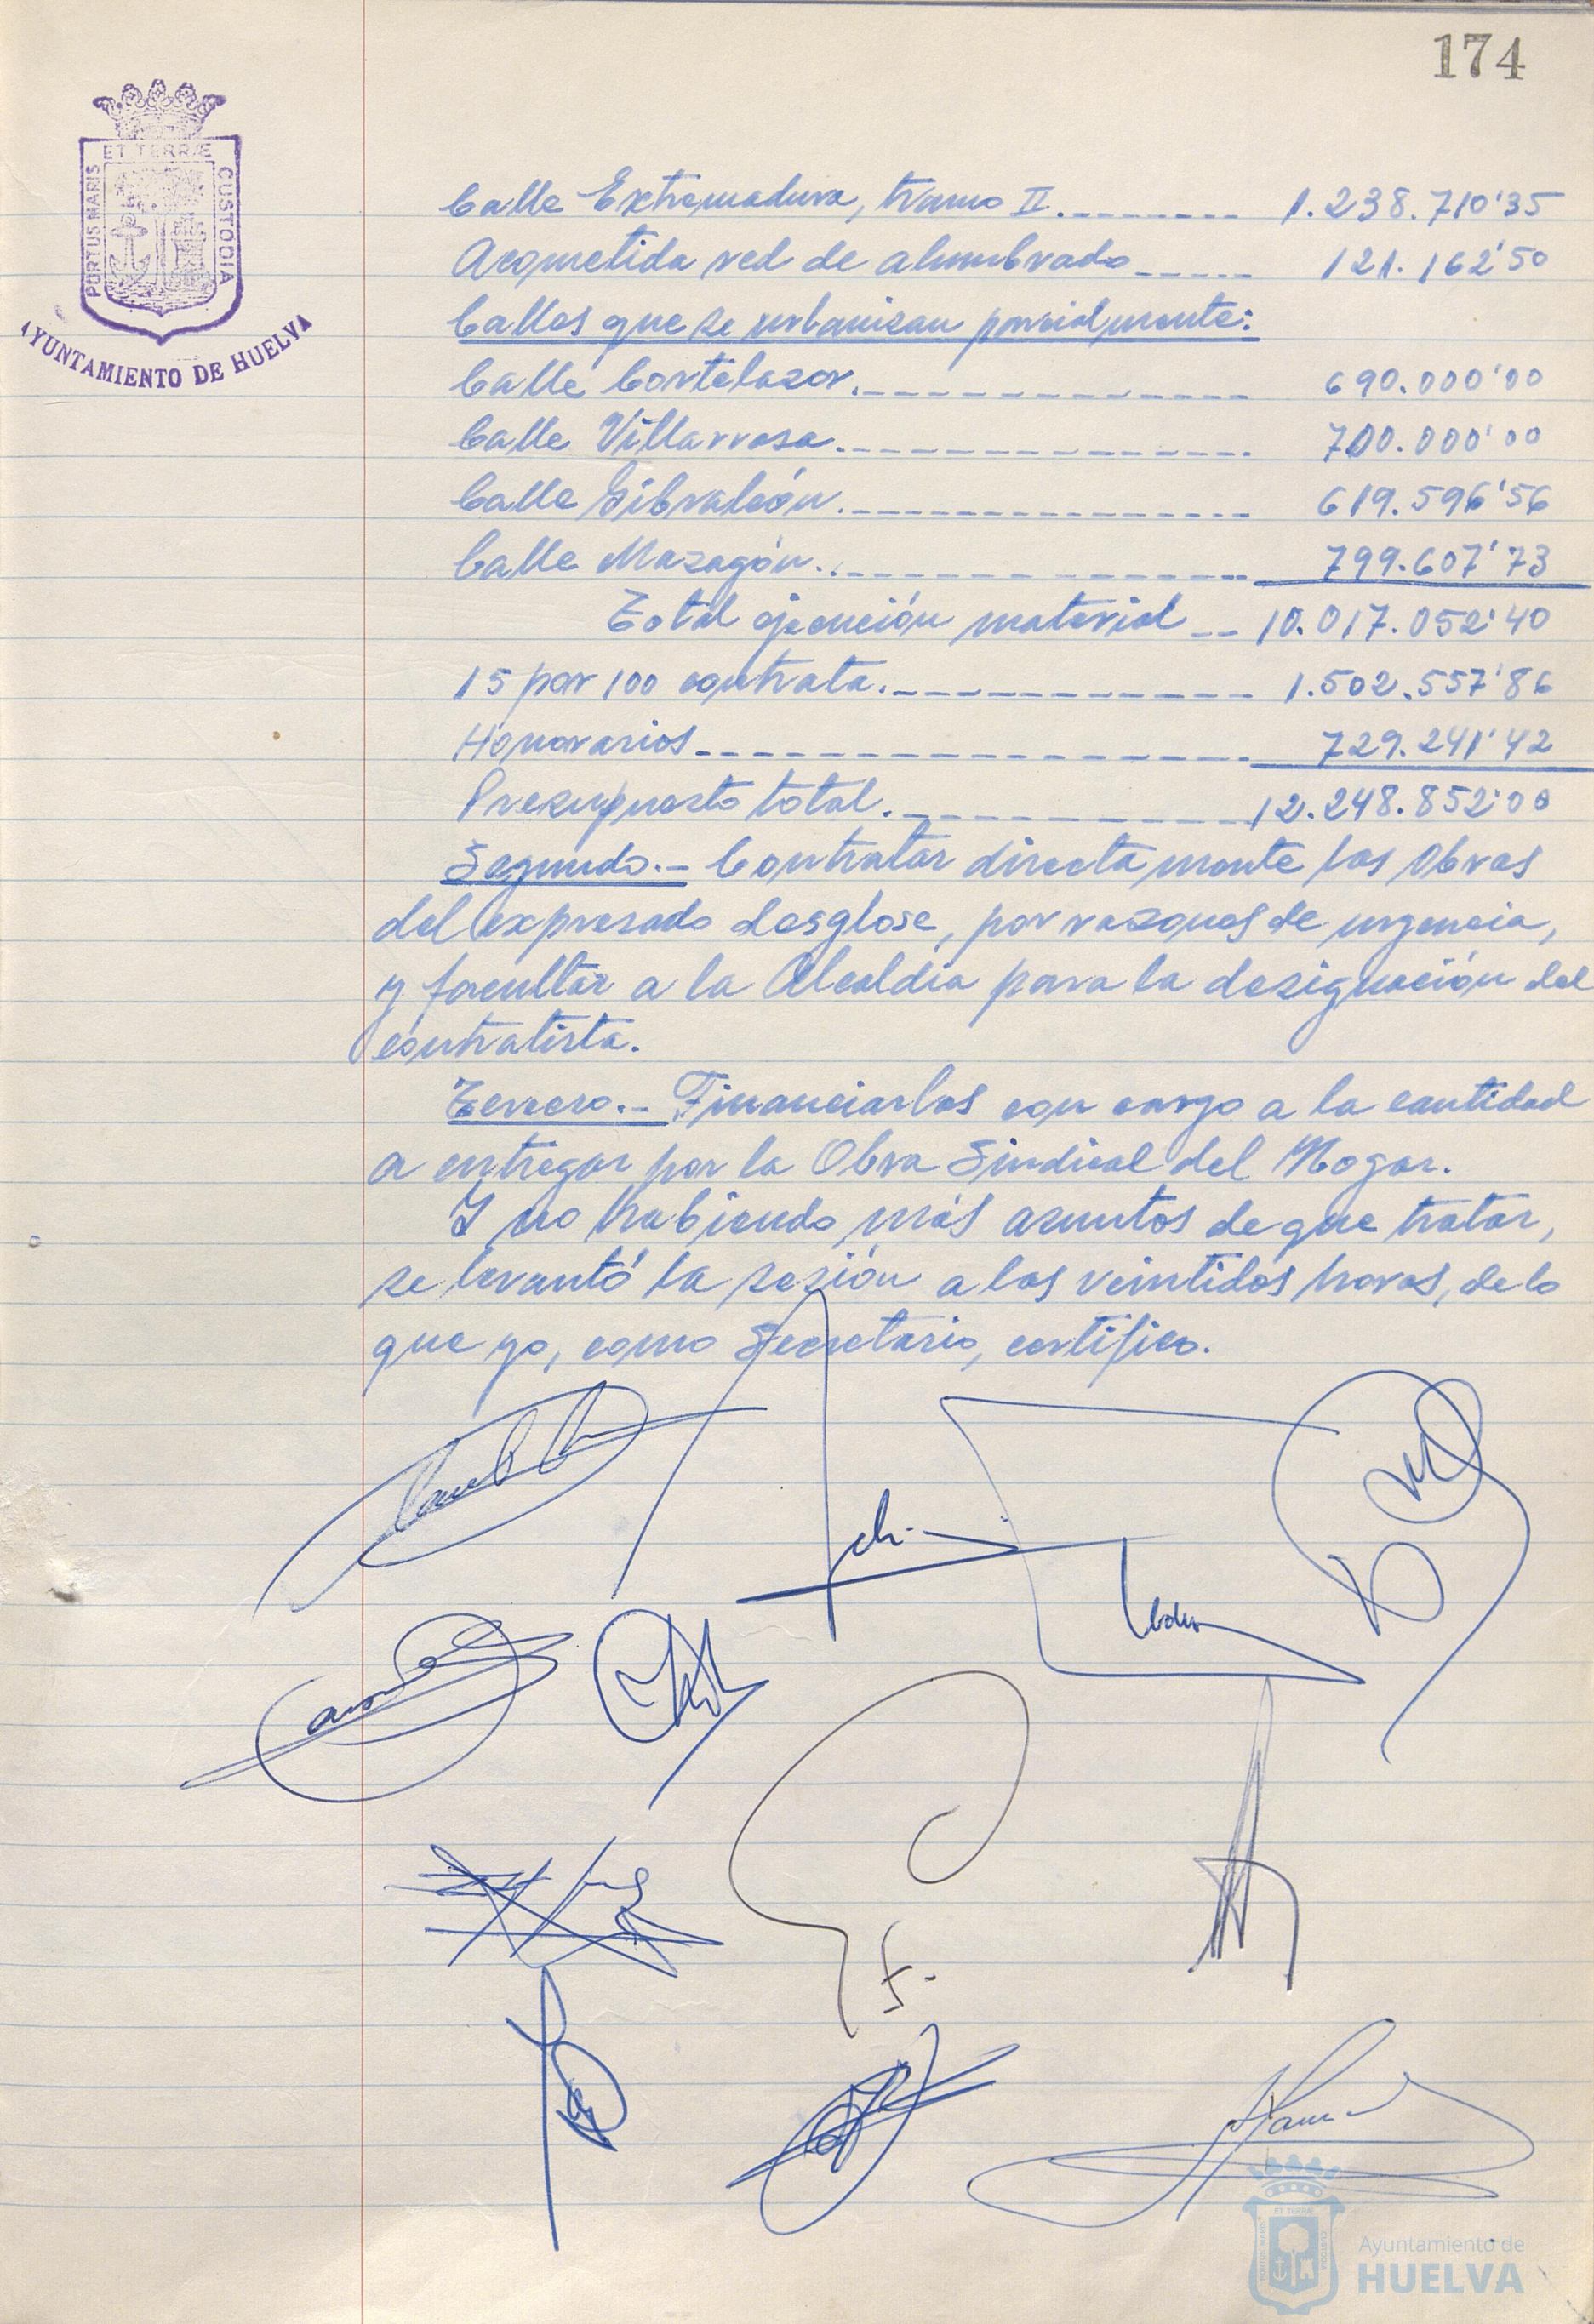 174
ET TERRÆ
PORTUS MARIS
CUSTODIA
AYUNTAMIENTO DE HUELVA
Calle Extremadura, tramo II.-------- 1.238.710'35
Acometida red de alumbrado----- 121.162'50
Calles que se urbanizan parcialmente:
Calle Cortelazor.------------- 690.000'00
Calle Villarrasa.-------------- 700.000'00
Calle Gibraleón.-------------- 619.596'56
Calle Mazagón..-------------- 799.607'73
Total ejecución material -- 10.017.052'40
15 por 100 contrata.----------- 1.502.557'86
Honorarios---------------- 729.241'42
Presupuesto total.----------- 12.248.852'00
Segundo.- Contratar directamente las obras
del expresado desglose, por razones de urgencia,
y facultar a la Alcaldía para la designación del
contratista.
Tercero.- Financiarlas con cargo a la cantidad
a entregar por la Obra Sindical del Hogar.
Y no habiendo más asuntos de que tratar,
se levantó la sesión a las veintidós horas, de lo
que yo, como Secretario, certifico.
Ayuntamiento de
HUELVA